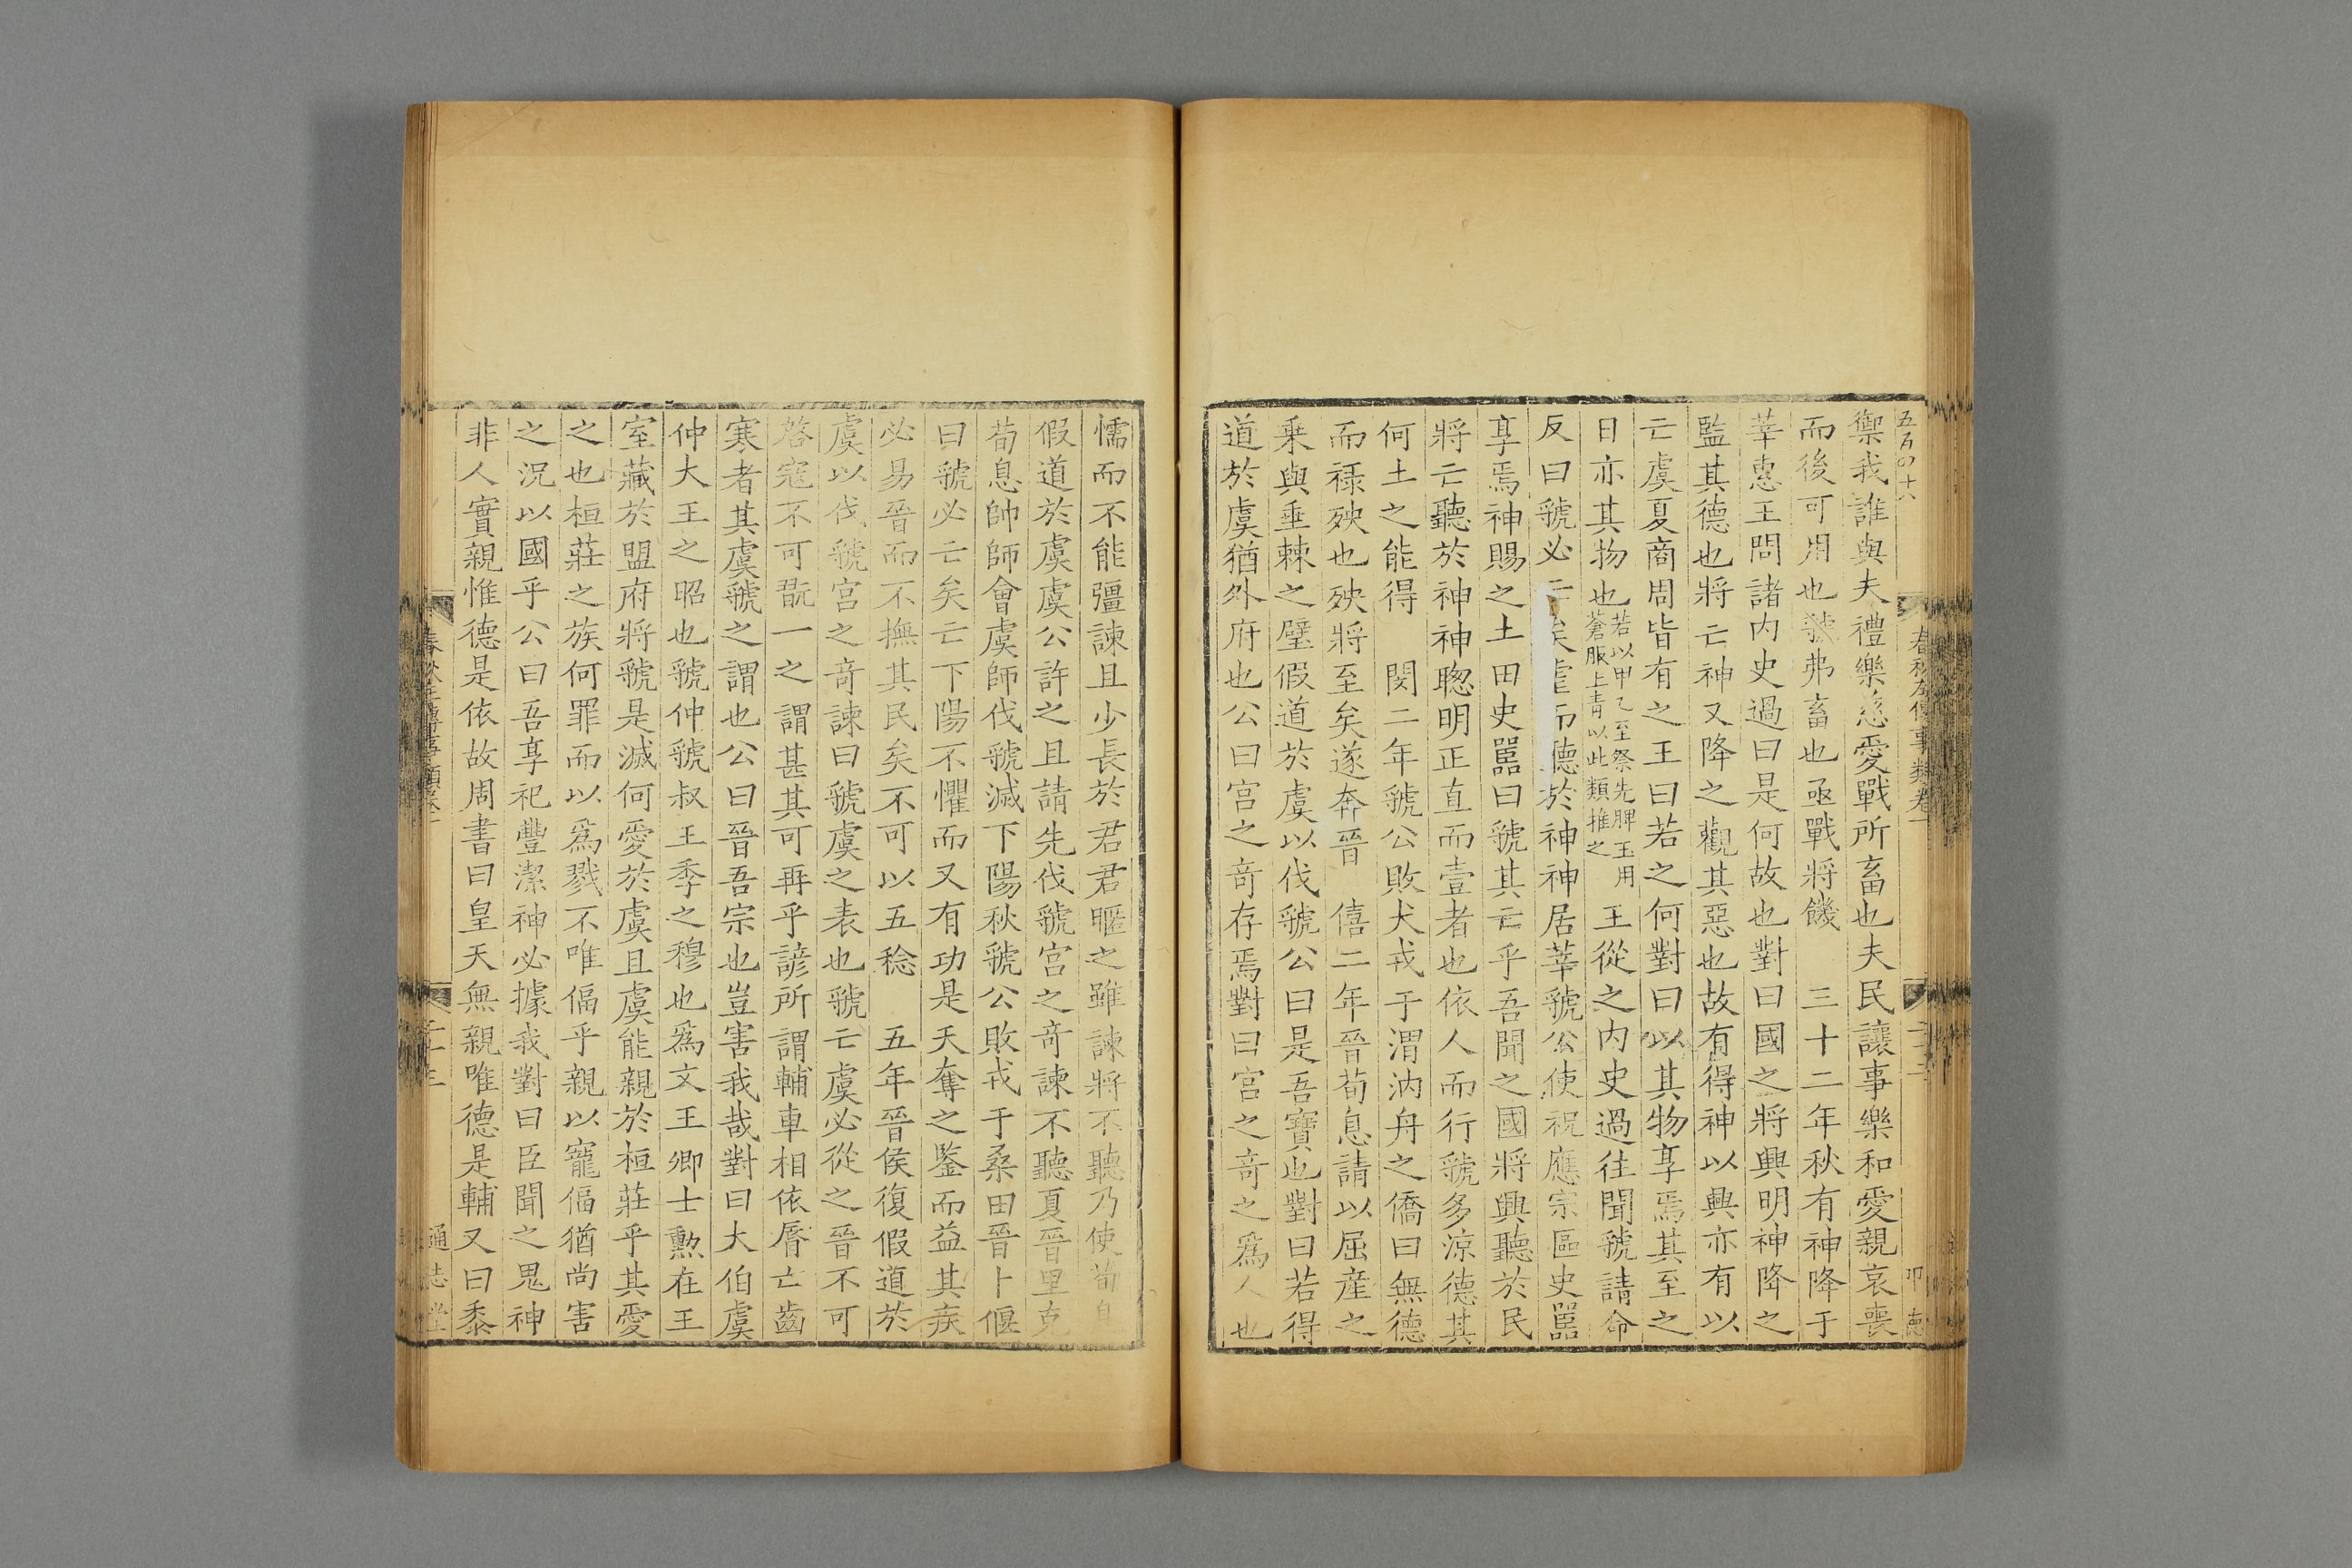 五百四十八
春秋左傳事類卷一
印德
禦我誰與夫禮樂慈愛戰所畜也夫民讓事樂和愛親哀喪
而後可用也虢弗畜也亟戰將饑　三十二年秋有神降于
莘惠王問諸内史過曰是何故也對曰國之將興明神降之
監其德也將亡神又降之觀其惡也故有得神以興亦有以
亡虞夏商周皆有之王曰若之何對曰以其物享焉其至之
日亦其物也若以甲乙至祭先脾玉用蒼服上青以此類推之　王從之内史過往聞虢請命
反曰虢必矣虐而德於神神居莘虢公使祝應宗區史嚚
享焉神賜之土田史嚚曰虢其亡乎吾聞之國將興聽於民
將亡聽於神神聰明正直而壹者也依人而行虢多涼德其
何土之能得　閔二年虢公敗犬戎于渭汭舟之僑曰無德
而祿殃也殃將至矣遂奔晉　僖二年晉荀息請以屈產之
乘與垂棘之璧假道於虞以伐虢公曰是吾寶也對曰若得
道於虞猶外府也公曰宮之奇存焉對曰宮之奇之爲人也
懦而不能彊諫且少長於君君暱之雖諫將不聽乃使荀息
假道於虞虞公許之且請先伐虢宮之奇諫不聽夏晉里克
荀息帥師會虞師伐虢滅下陽秋虢公敗戎于桑田晉卜偃
曰虢必亡矣亡下陽不懼而又有功是天奪之鑒而益其疾
必易晉而不撫其民矣不可以五稔　五年晉侯復假道於
虞以伐虢宮之奇諫曰虢虞之表也虢亡虞必從之晉不可
啓寇不可翫一之謂甚其可再乎諺所謂輔車相依脣亡齒
寒者其虞虢之謂也公曰晉吾宗也豈害我哉對曰大伯虞
仲大王之昭也虢仲虢叔王季之穆也爲文王卿士勳在王
室藏於盟府將虢是滅何愛於虞且虞能親於桓莊乎其愛
之也桓莊之族何罪而以爲戮不唯偪乎親以寵偪猶尚害
之況以國乎公曰吾享祀豐潔神必據我對曰臣聞之鬼神
非人實親惟德是依故周書曰皇天無親唯德是輔又曰黍
春秋左傳事類卷一
通志堂